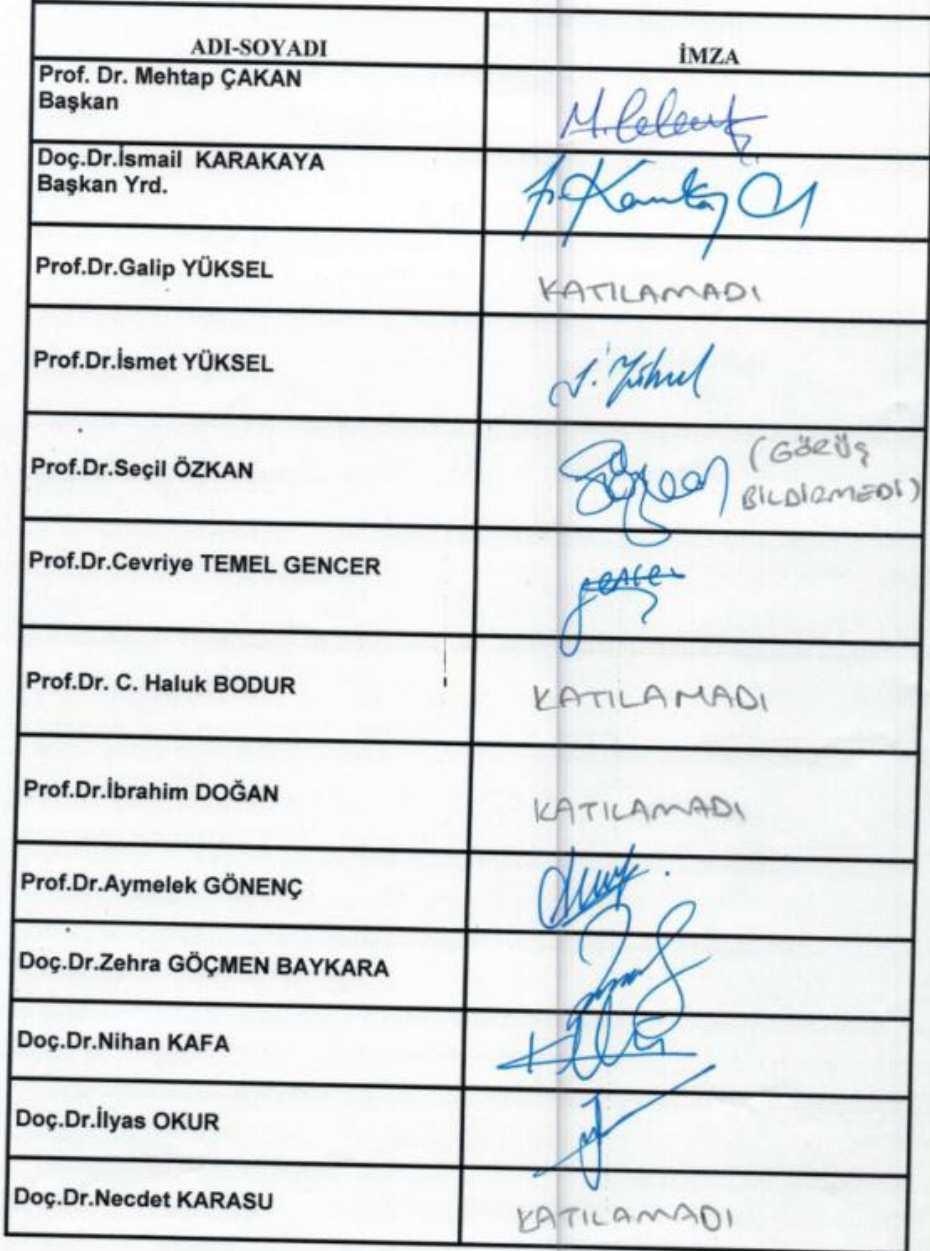 ADI-SOYADI İMZA
Prof. Dr. Mehtap ÇAKAN
Başkan
Doç.Dr.İsmail KARAKAYA
Başkan Yrd.
Prof.Dr.Galip YÜKSEL KATILAMADI
Prof.Dr.İsmet YÜKSEL
Prof.Dr.Seçil ÖZKAN (GÖRÜŞ
BİLDİRMEDİ)
Prof.Dr.Cevriye TEMEL GENCER
Prof.Dr. C. Haluk BODUR KATILAMADI
Prof.Dr.İbrahim DOĞAN KATILAMADI
Prof.Dr.Aymelek GÖNENÇ
Doç.Dr.Zehra GÖÇMEN BAYKARA
Doç.Dr.Nihan KAFA
Doç.Dr.İlyas OKUR
Doç.Dr.Necdet KARASU KATILAMADI